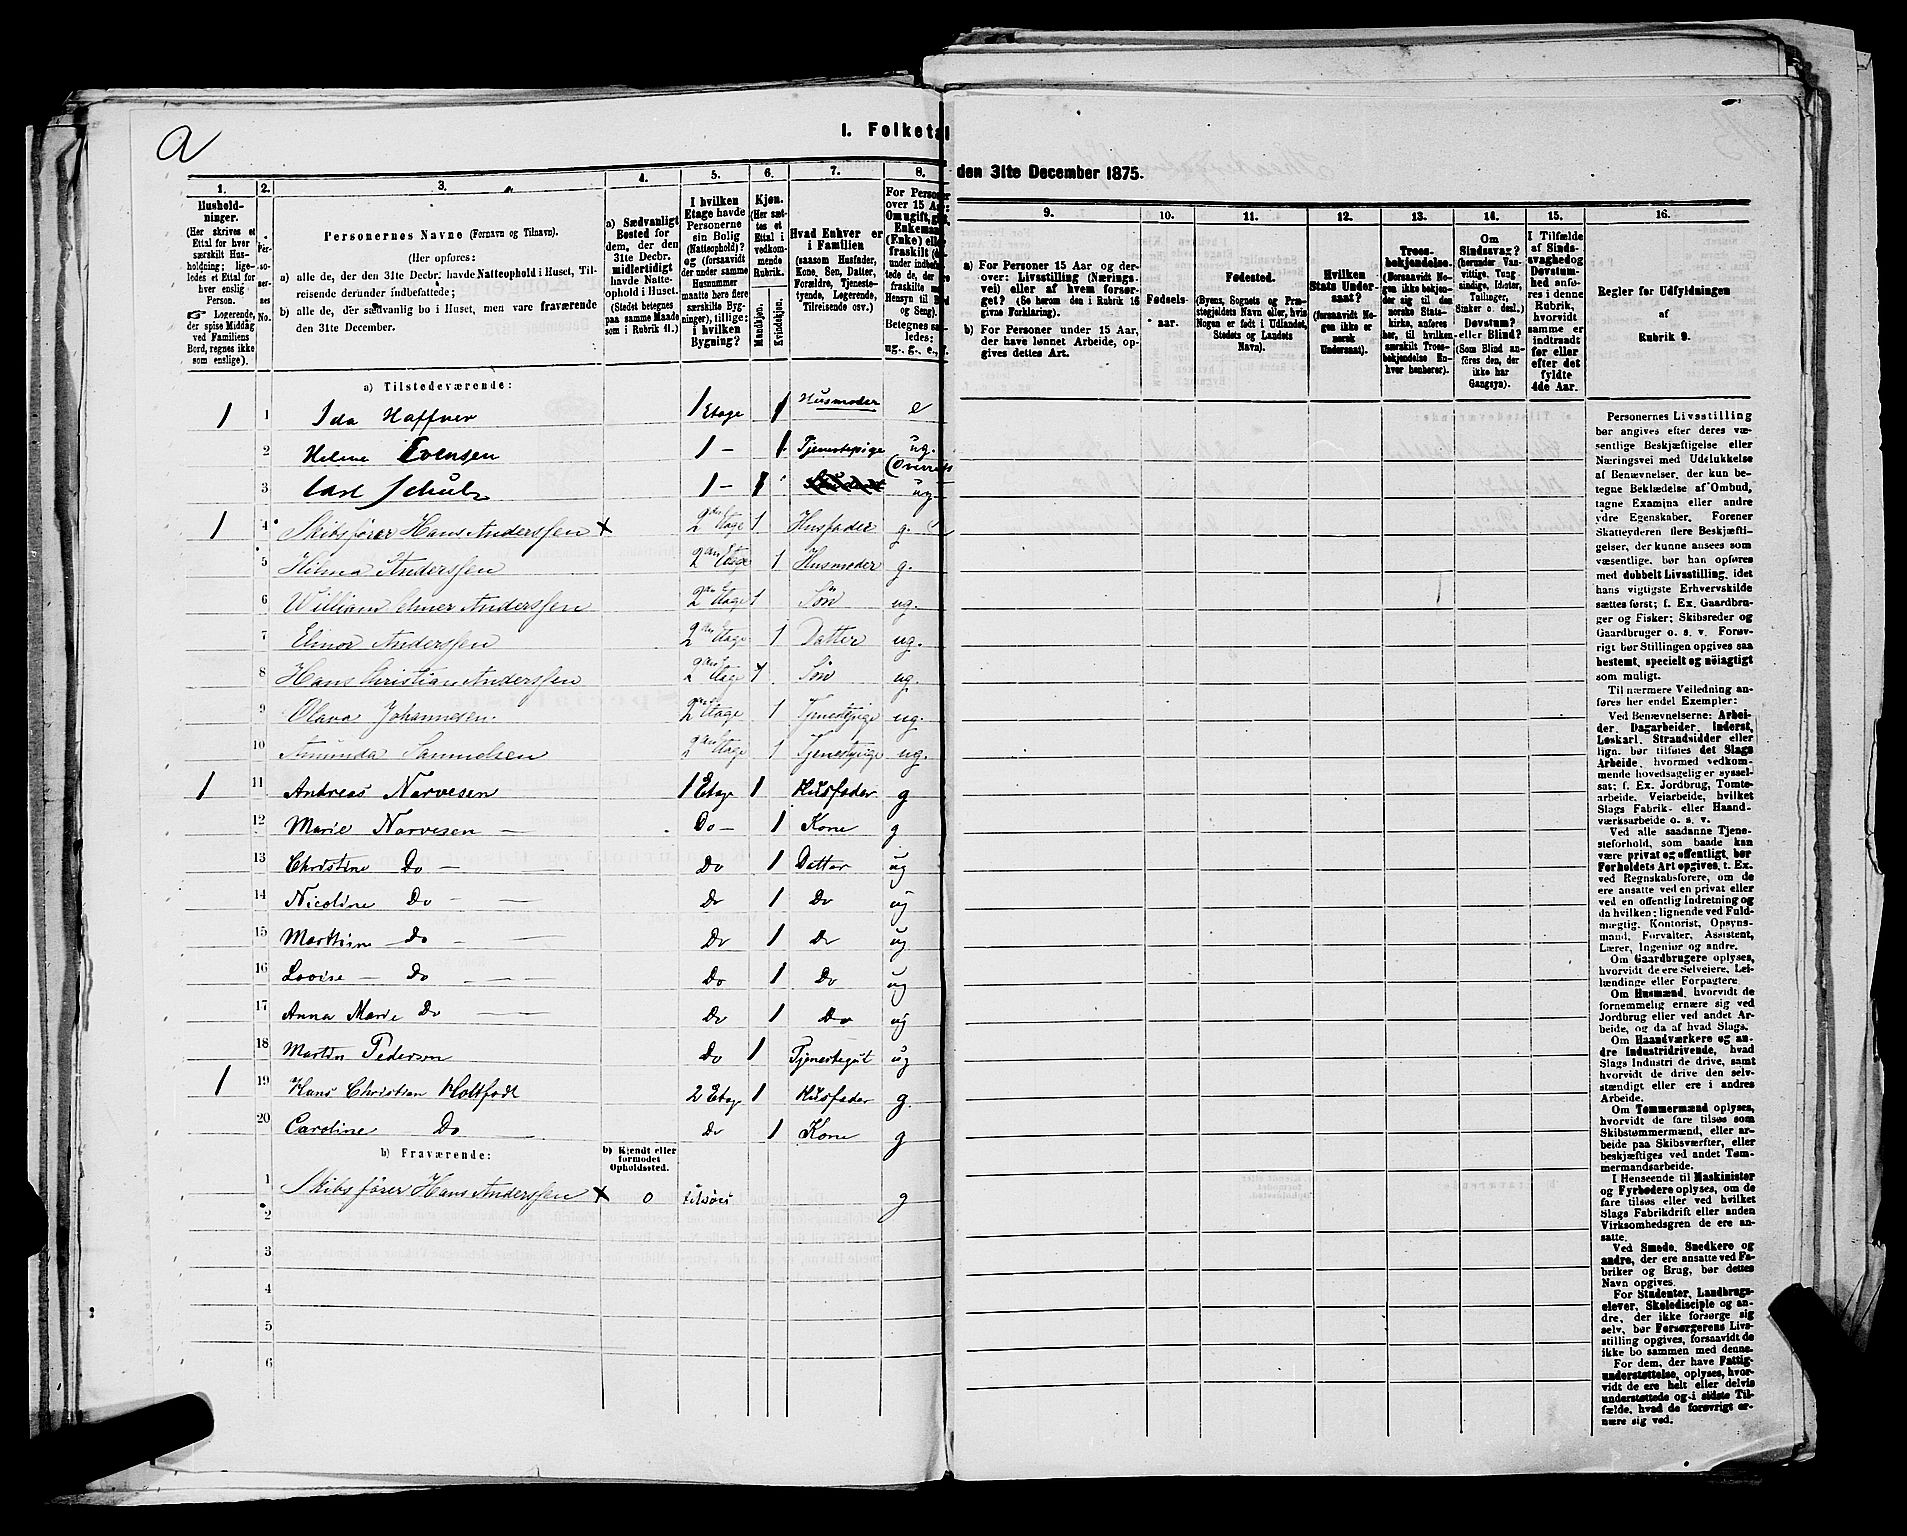 a
I. Folketal
den 31te December 1875.
1. 2. 3. 4. 5. 6. 7. 8.
Hushold-
ninger.
(Her skrives et
Ettal for hver
særskilt Hus-
holdning; lige-
ledes et Ettal for
hver enslig
Person.
☞ Logerende,
der spise Middag
ved Familiens
Bord, regnes ikke
som enslige).
Per-
so-
ner-
nes
No.
Personernes Navne (Fornavn og Tilnavn).
(Her opføres:
a) alle de, der den 31te Decbr. havde Natteophold i Huset, Til-
reisende derunder indbefattede;
b) alle de, der sædvanlig bo i Huset, men vare fraværende
den 31te December.
a) Sædvanligt
Bosted for
dem, der den
31te Decbr.
midlertidigt
havde Natte-
ophold i Huset.
(Stedet betegnes
paa samme Maade
som i Rubrik 11.)
I hvilken
Etage havde
Personerne
sin Bolig
(Natteophold)?
og (forsaavidt
der under samme
Husnummer
maatte høre flere
særskilte Byg-
ninger), tillige:
i hvilken
Bygning?
Kjøn.
(Her sæt-
tes et
Ettal i
vedkom-
mende
Rubrik.
Mandkjøn.
Kvindekjøn.
Hvad Enhver er
i Familien
(saasom Husfader,
Kone, Søn, Datter,
Forældre, Tjeneste-
tyende, Logerende,
Tilreisende osv.)
For Personer
over 15 Aar:
Om ugift, gift,
Enkemand
(Enke) eller
fraskilt
Betegnes saa-
ledes:
ug., g., e.,
a) Tilstedeværende:
1 1 Ida Haffner 1 Etage 1 Husmoder e
2 Helene Evensen 1 – 1 Tjenestepige ug.
3 Carl Schulz 1 – 1 ug
1 4 Skibsfører Hans Anderssen × 2den Etage 1 Husfader g.
5 Hilma Anderssen 2den Etage 1 Husmoder g.
6 William Anderssen 2den Etage 1 Søn ug.
7 Elinor Anderssen 2den Etage 1 Datter ug.
8 Hans Christian Anderssen 2den Etage 1 Søn ug.
9 Olava Johannesen. 2den Etage 1 Tjenestpige ug.
10 Amunda Samuelsen 2den Etage 1 Tjenestpige ug.
1 11 Andreas Narvesen 1 Etage 1 Husfader g
12 Marie Narvesen – Do – 1 Kone g
13 Christine Do – Do 1 Datter ug
14 Nicoline Do – – Do 1 Do ug
15 Do – – Do 1 Do ug
16 Lovise – Do – Do 1 Do ug
17 Anna Marie Do – Do 1 Do ug
18 Martin Pedersen Do 1 Tjenestegut ug
1 19 Hans Christian Holtfodt 2 Etage 1 Husfader g.
20 Caroline – Do – Do 1 Kone g
b) Fraværende:
b) Kjendt eller
formodet
Opholdssted.
1 Skibsfører Hans Anderssen × 0 tilsøes g
2
3
4
5
6
9. 10. 11. 12. 13. 14. 15. 16.
a) For Personer 15 Aar og der-
over: Livsstilling (Nærings-
vei) eller af hvem forsør-
get? (Se herom den i Rubrik 16
givne Forklaring).
b) For Personer under 15 Aar,
der have lønnet Arbeide, op-
gives dettes Art.
Fødsels-
aar.
Fødested.
(Byens, Sognets og Præ-
stegjeldets Navn eller, hvis
Nogen er født i Udlandet,
Stedets og Landets
Navn.)
Hvilken
Stats Under-
saat?
(forsaavidt No-
gen ikke er
norsk
Undersaat).
Troes-
bekjendelse.
(Forsaavidt No-
gen ikke bekjen-
der sig til den
norske Stats-
kirke, anføres
her, til hvilket
særskilt Troes-
bekjendelse En-
hver henhører).
Om
Sindssvag?
(herunder Van-
vittige, Tung-
sindige, Idioter,
Tullinger,
Sinker o. desl.).
Døvstum?
eller Blind?
(Som Blind an-
føres den, der
ikke har
Gangsyn).
I Tilfælde
af Sinds-
svaghed og
Døvstum-
hed anfø-
res i denne
Rubrik,
hvorvidt
samme er
indtraadt
før eller
efter det
fyldte
4de Aar.
Regler for Udfyldningen
af
Rubrik 9.
Personernes Livsstilling
bør angives efter deres væ-
sentlige Beskjæftigelse eller
Næringsvei med Udelukkelse
af Benævnelser, der kun be-
tegne Beklædelse af Ombud,
tagne Examina eller andre
ydre Egenskaber. Forener
Skatteyderen flere Beskjæfti-
gelser, der kunne ansees som
væsentlige, bør han opføres
med dobbelt Livsstilling, idet
hans vigtigste Erhvervskilde
sættes først; f. Ex. Gaardbru-
ger og Fisker; Skibsreder og
Gaardbruger o. s. v. Forøv-
rigt bør Stillingen opgives saa
bestemt, specielt og nøiagtigt
som muligt.
Til nærmere Veiledning an-
føres her endel Exempler:
Ved Benævnelserne: Arbei-
der, Dagarbeider, Inderst,
Løskarl, Strandsidder eller
lign. bør tilføies det Slags
Arbeide, hvormed vedkom-
mende hovedsagelig er syssel-
sat; f. Ex. Jordbrug, Tomte-
arbeide, Veiarbeide, hvilket
Slags Fabrik- eller Haand-
værksarbeide o. s. v.
Ved alle saadanne Tjene-
steforhold, som baade kan
være privat og offentligt, bør
Forholdets Art opgives, t. Ex.
ved Regnskabsførere, om de
ere ansatte ved en privat eller
ved en offentlig Indretning og
da hvilken; lignende ved Fuld-
mægtig, Kontorist, Opsyns-
mand, Forvalter, Assistent,
Lærer, Ingeniør og andre.
Om Gaardbrugere oplyses,
hvorvidt de ere Selveiere, Lei-
lændinge eller Forpagtere.
Om Husmænd, hvorvidt de
fornemmelig ernære sig ved
Jordbrug eller ved andet Ar-
beide, og da af hvad Slags.
Om Haandværkere og an-
dre industridrivende, hvad
Slags Industri de drive, samt
hvorvidt de drive den selv-
stændigt eller ere i andres
Arbeide.
Om Tømmermænd oplyses,
hvorvidt de fare tilsøs som
Skibstømmermænd, eller ar-
beide paa Skibsværfter, eller
beskjæftiges ved andet Tøm-
mermandsarbeide.
I Henseende til Maskinister
og Fyrbødere oplyses, om de
fare tilsøs eller ved hvilket
Slags Fabrikdrift eller anden
Virksomhedsgren de ere an-
satte.
Ved Smede, Snedkere og
andre, der ere ansatte ved Fa-
briker og Brug, bør dettes
Navn opgives.
For Studenter, Landbrugs-
elever, Skoledisciple og an-
dre, der ikke forsørge sig
selv, bør Forsørgerens Livs-
stilling opgives, forsaavidt de
ikke bo sammen med denne.
For dem, der have Fattig-
understøttelse, oplyses, hvor-
vidt de ere helt eller delvis
understøttede og i sidste Til-
fælde, hvad de forøvrigt er-
nære sig ved.